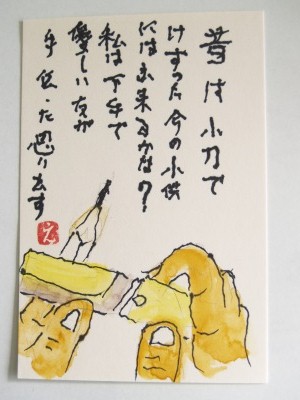 昔は小刀で
けずった今の小供
には出来るかな?
私は下手で
優しい友が
手伝った思います